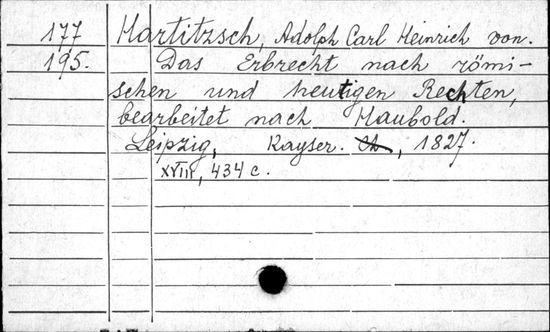 177 Hartitzsch, Adolph Carl Heinrich von.
195. Das Erbrecht nach römi-
schen und heutigen Rechten,
bearbeitet nach Haubold.
Leipzig, Kayser. , 1827.
XVIII, 434 c.